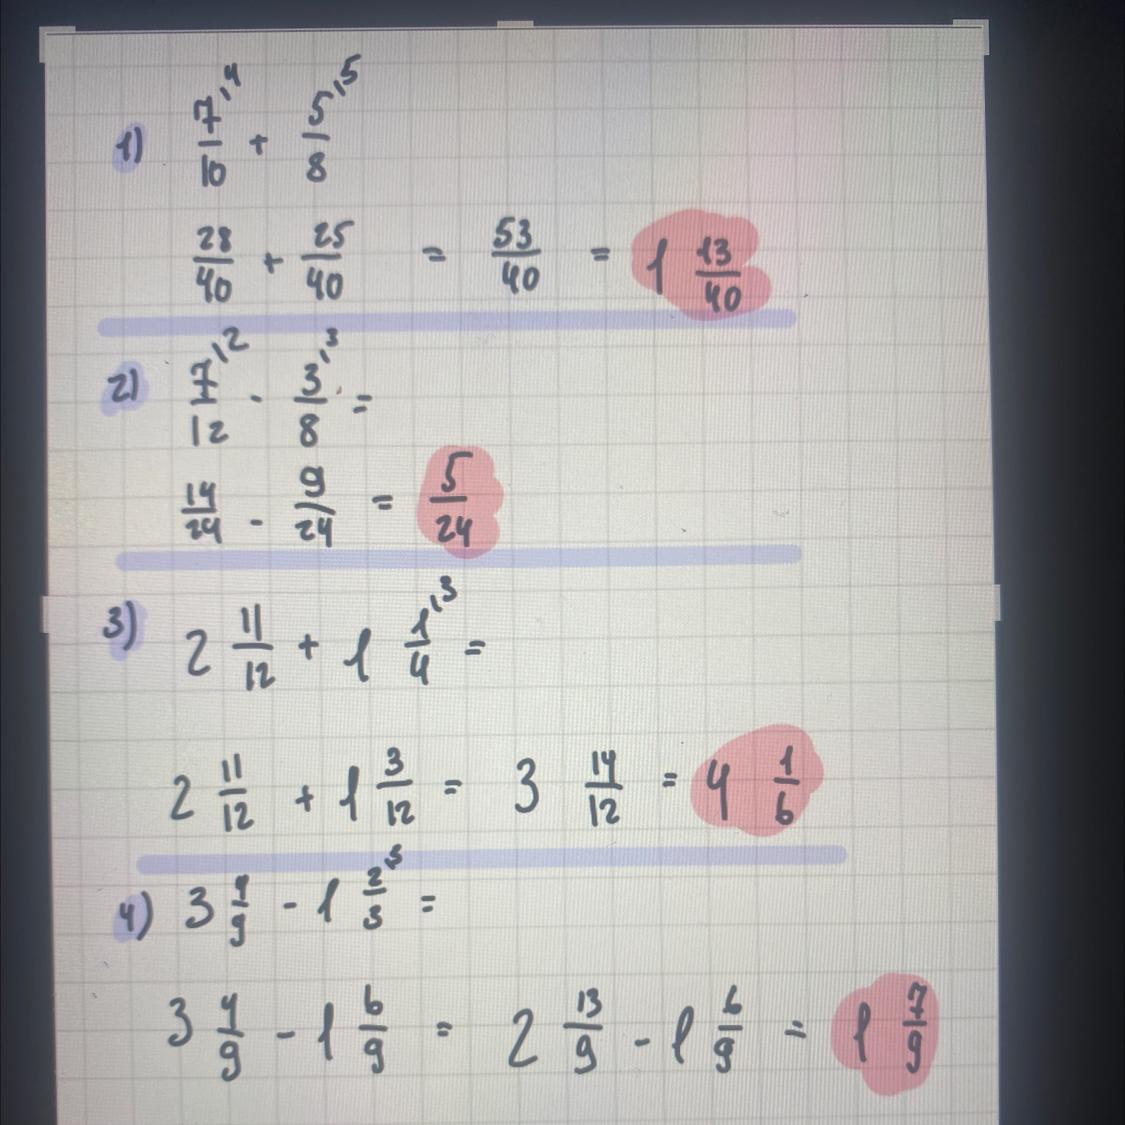 1) 7/10 ՝4 + 5/8 ՝5
28/40 + 25/40 = 53/40 = 1 13/40
2) 7/12 ՝2 - 3/8 ՝3 =
14/24 - 9/24 = 5/24
3) 2 11/12 + 1 1/4 ՝3 =
2 11/12 + 1 3/12 = 3 14/12 = 4 1/6
4) 3 4/9 - 1 2/3 ՝3 =
3 4/9 - 1 6/9 = 2 13/9 - 1 6/9 = 1 7/9